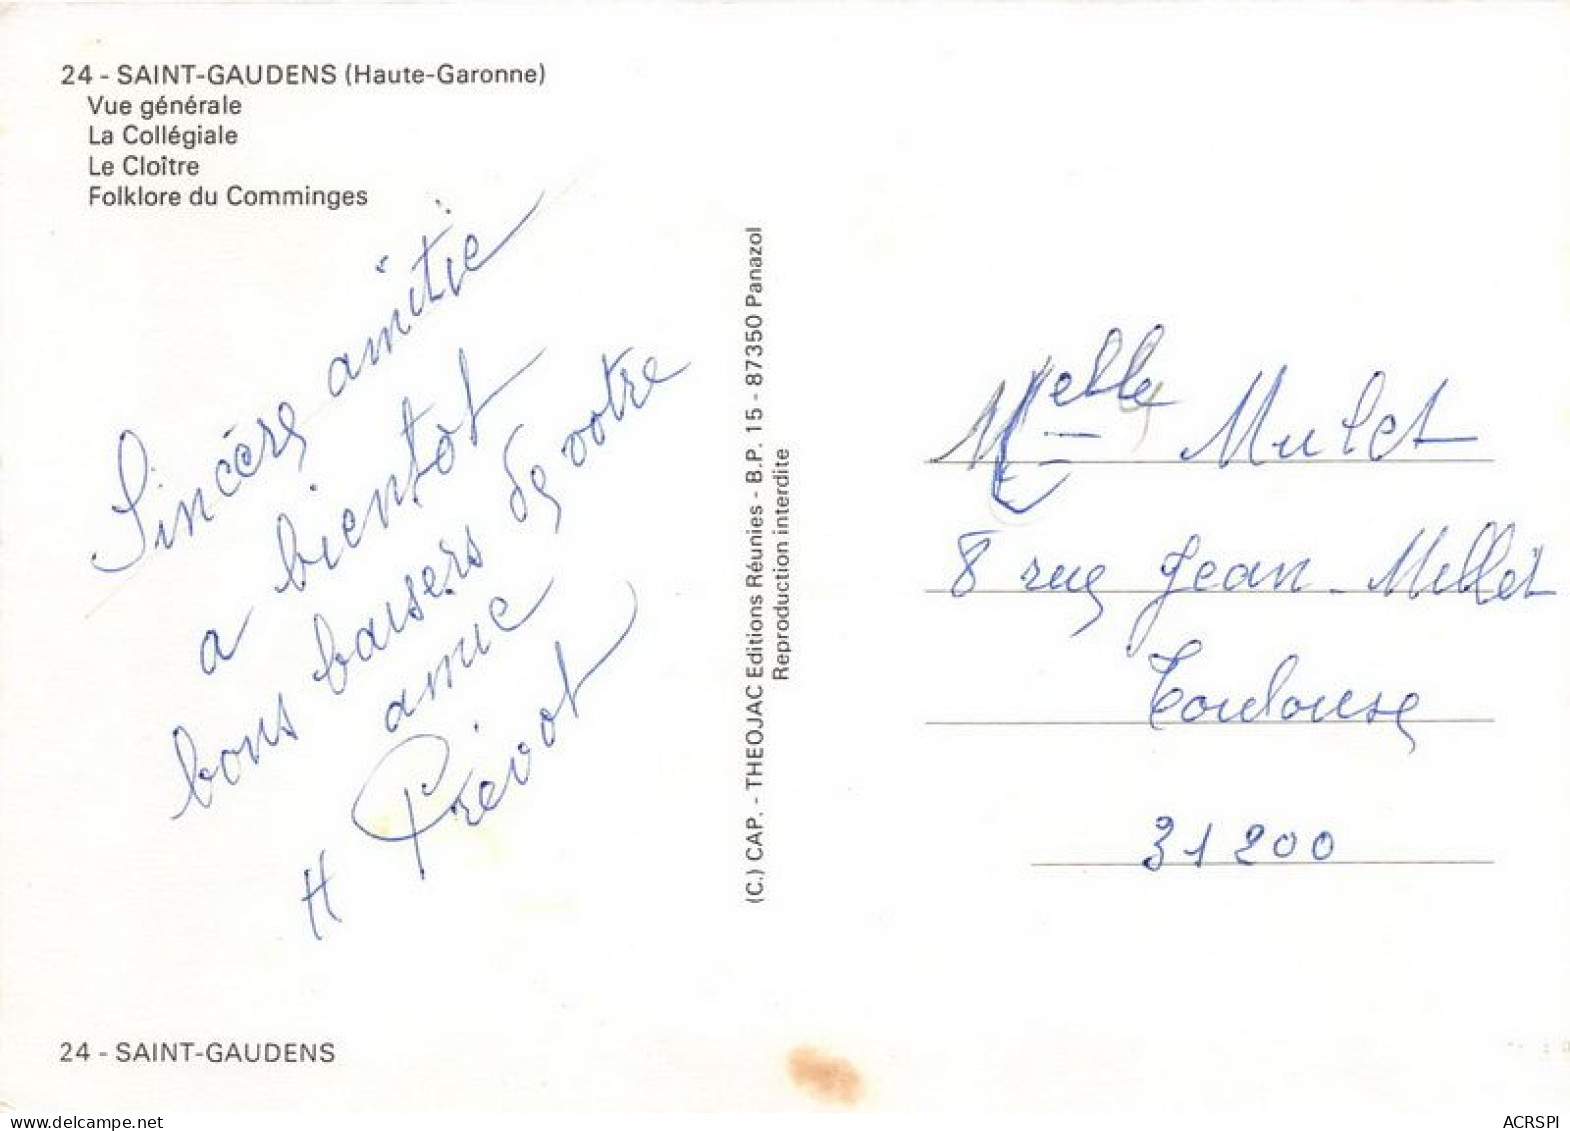 24 - SAINT-GAUDENS (Haute-Garonne)
Vue générale
La Collégiale
Le Cloître
Folklore du Comminges
Sincère amitié
a bientôt
bons baisers de votre
amie
H Prévot
24 - SAINT-GAUDENS
(C.) CAP. - THEOJAC Editions Réunies - B.P. 15 - 87350 Panazol
Reproduction interdite
Melle Mulet
8 rue Jean-Millet
Toulouse
31200
ACRSPI